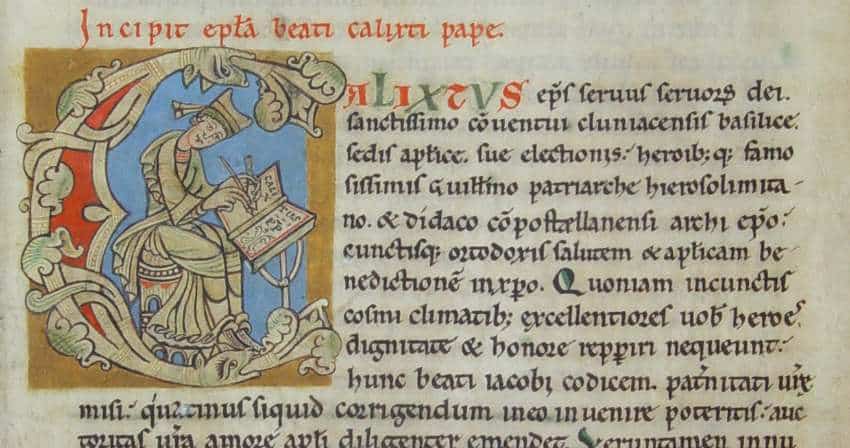 Incipit epła beati calixti pape.
CALIXTVS ep̄s seruus seruoꝝ dei.
sanctissimo cōuentui cluniacensis basilice.
sedis aplīce. sue electionis: heroib; q; famo
sissimis Guiłłmo patriarche hierosolimita-
no. & didaco cōpostellanensi archi ep̄o:
cunctisq; ortodoxis salutem & aplīcam be-
nedictionē inxp̄o. Quoniam incunctis
cosmi climatib; excellentiores uob̄ heroes
dignitate & honore repperiri nequeunt:
hunc beati iacobi codicem. pat̄nitati ur̄e
misi: siquid corrigendum ineo inuenire poteritis: auc
toritas ur̄a amore apłi diligenter emendet. Veruntamen innu
CALI